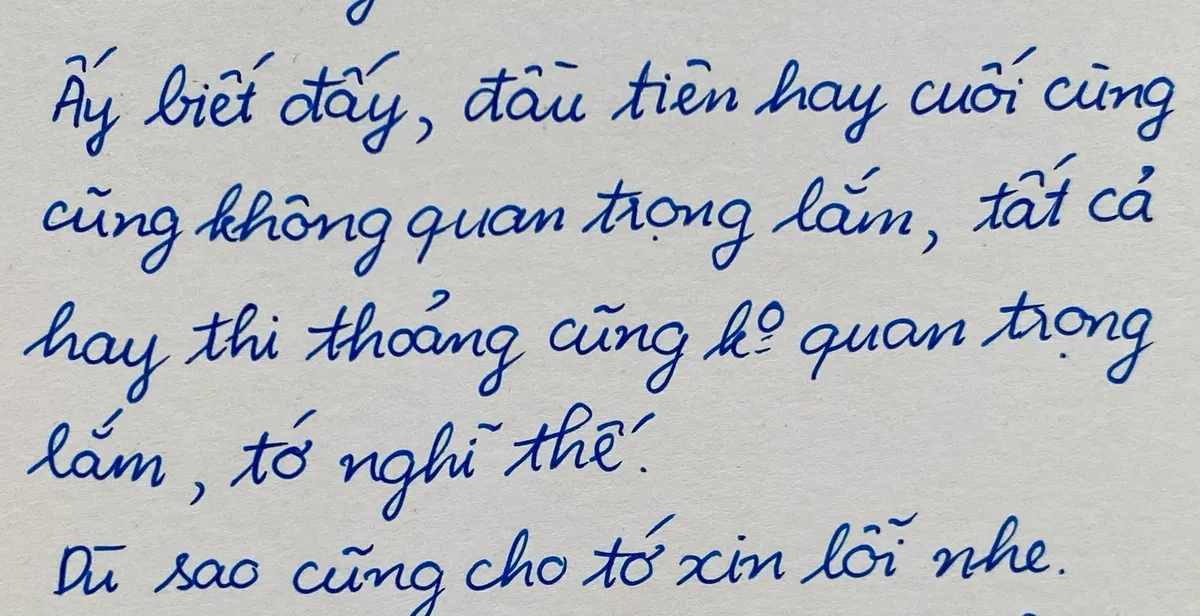 Ấy biết đấy, đầu tiên hay cuối cùng
cũng không quan trọng lắm, tất cả
hay thi thoảng cũng kº quan trọng
lắm, tớ nghĩ thế.
Dù sao cũng cho tớ xin lỗi nhe.